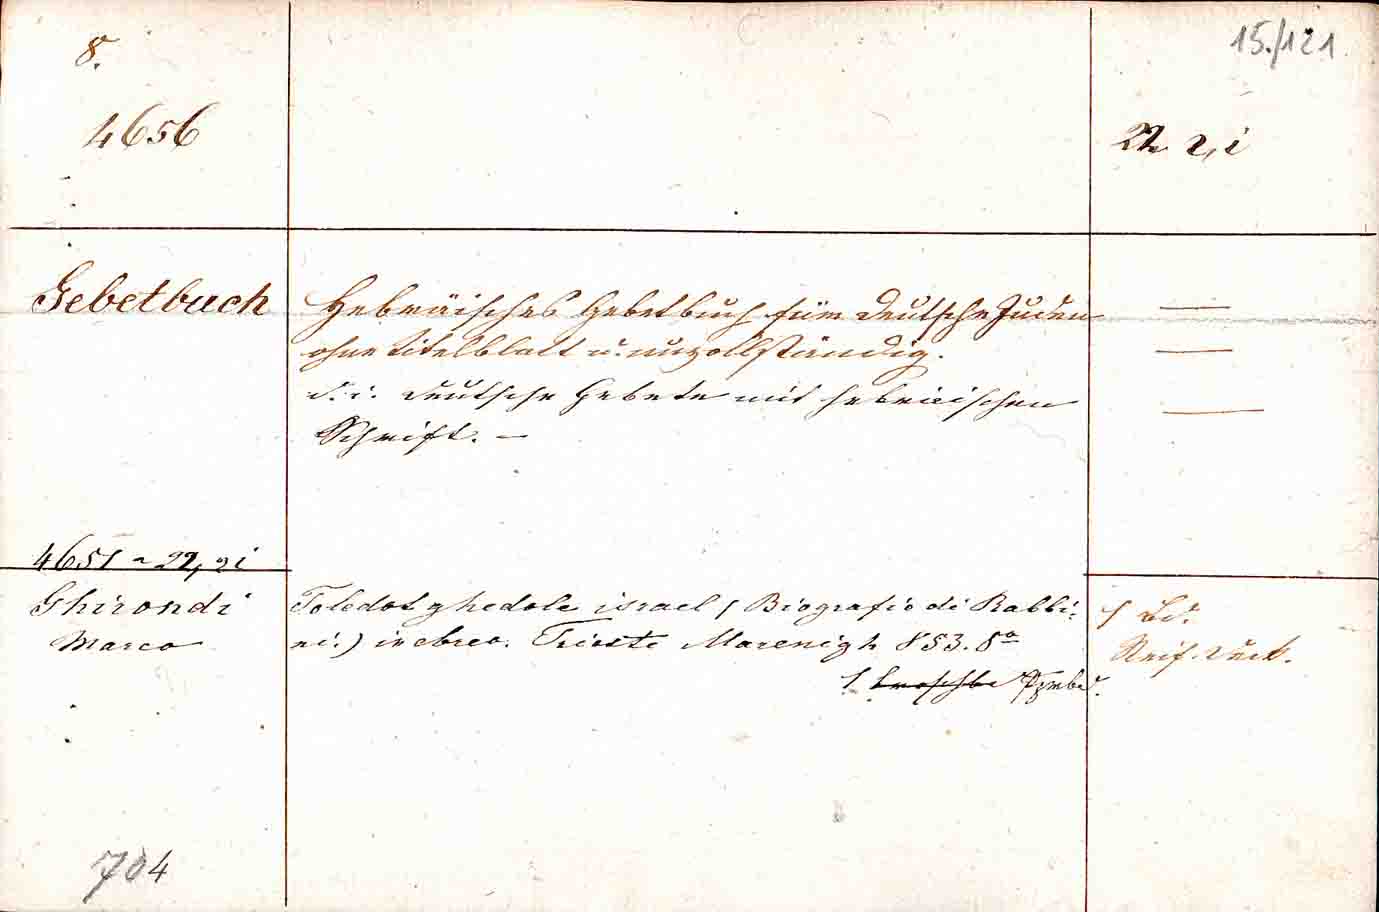 8.
15./121
4656
22 2, i
Gebetbuch
Hebräisches Gebetbuch für deutsche Juden
ohne Titelblatt u. unvollständig.
d. i. deutsche Gebete mit hebräischen
Schrift. –
4651 ~ 22, 2i
Ghirondi
Marco
Toledot ghedole israel / Biografie di Rabbi-
ni.) in ebreo. Trieste Marenigh 853. 8°
1 Bd.
1 broschbd Ppnbd.
704